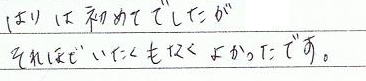 はりは初めてでしたが
それほどいたくもなくよかったです。